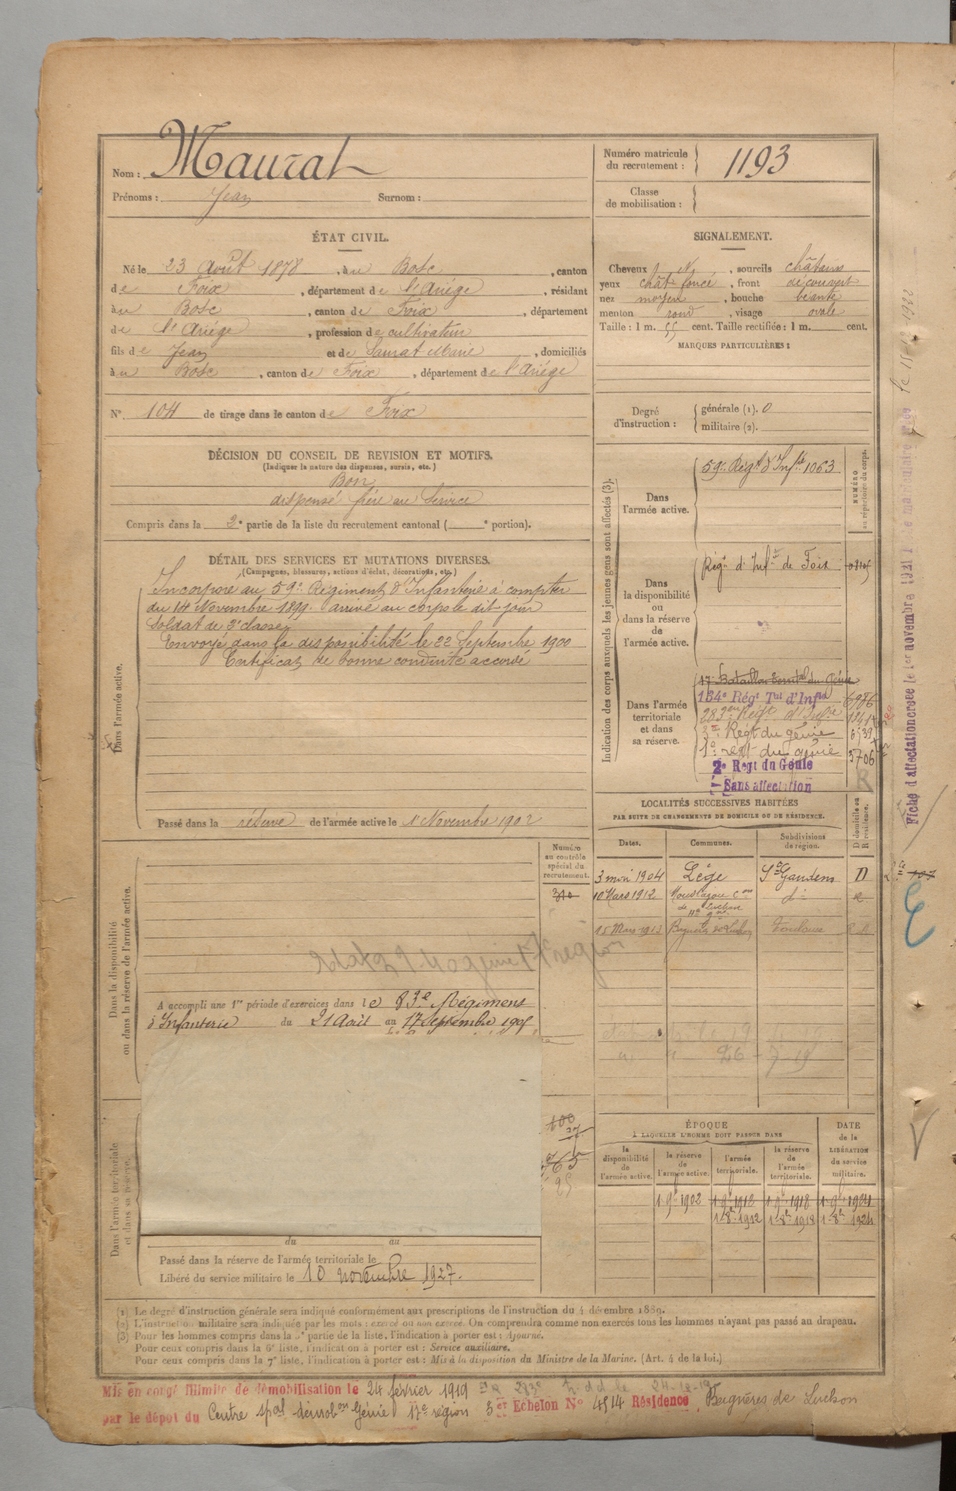 Nom : Maurat
Prénoms : Jean Surnom :
Numéro matricule du recrutement : 1193
Classe de mobilisation :
ÉTAT CIVIL.
Né le 23 Août 1878, à u Bosc, canton
de Foix, département de l'Ariège, résidant
au Bosc, canton de Foix, département
de l'Ariège, profession de cultivateur
fils de Jean et de Saurat Marie, domiciliés
à u Bosc, canton de Foix, département de l'Ariège
N° 104 de tirage dans le canton de Foix
SIGNALEMENT.
Cheveux , sourcils châtains
yeux chât foncé, front découvert
nez moyen, bouche béante
menton rond, visage ovale
Taille : 1 m. 55 cent. Taille rectifiée : 1 m. cent.
MARQUES PARTICULIÈRES :
Degré d'instruction : générale (1). 0
militaire (2).
DÉCISION DU CONSEIL DE REVISION ET MOTIFS.
(Indiquer la nature des dispenses, sursis, etc.)
Bon
dispensé frère au service
Compris dans la 3e partie de la liste du recrutement cantonal ( e portion).
DÉTAIL DES SERVICES ET MUTATIONS DIVERSES.
(Campagnes, blessures, actions d'éclat, décorations, etc.)
Dans l'armée active.
Incorporé au 59e Régiment d'Infanterie à compter
du 14 Novembre 1899. arrivé au corps le dit jour
Soldat de 2e classe
Envoyé dans la disponibilité le 22 Septembre 1900
Certificat de bonne conduite accordé
Passé dans la réserve de l'armée active le 1 Novembre 1902
Indication des corps auxquels les jeunes gens sont affectés (3).
NUMÉRO au répertoire du corps.
Dans l'armée active.
59e Régt d'Infie 1063
Dans la disponibilité ou dans la réserve de l'armée active.
Régt d'Infie de Foix
Dans l'armée territoriale et dans sa réserve.
17e Bataillon du Génie
134e Régt Tal d'Infie 6986
283e Régt d'Infie
2e Régt du génie
1er régt du génie 3706
2e Régt du Génie
Sans affectation
Fiche d'affectation créée le 1er novembre 1921
LOCALITÉS SUCCESSIVES HABITÉES
PAR SUITE DE CHANGEMENTS DE DOMICILE OU DE RÉSIDENCE.
Dates. Communes. Subdivisions de région. D domicile ou R résidence.
3 mai 1904 Lège St Gaudens D
10 Mars 1912 Moustajon
15 Mars 1913 Toulouse
Dans la disponibilité ou dans la réserve de l'armée active.
Numéro au contrôle spécial du recrutement.
A accompli une 1re période d'exercices dans le 83e Régiment
d'Infanterie du 21 Août au 17 Septembre 1905
Dans l'armée territoriale et dans sa réserve.
du au
Passé dans la réserve de l'armée territoriale le
Libéré du service militaire le 10 novembre 1927.
ÉPOQUE
A LAQUELLE L'HOMME DOIT PASSER DANS
la disponibilité de l'armée active. la réserve de l'armée active. l'armée territoriale. la réserve de l'armée territoriale. DATE de la LIBÉRATION du service militaire.
1-9e 1902 1-9e 1912 1-9e 1918 1-9e 1924
1-8e 1912 1-8e 1918 1-8e 1924
(1) Le degré d'instruction générale sera indiqué conformément aux prescriptions de l'instruction du 4 décembre 1889.
(2) L'instruction militaire sera indiquée par les mots : exercé ou non exercé. On comprendra comme non exercés tous les hommes n'ayant pas passé au drapeau.
(3) Pour les hommes compris dans la 5e partie de la liste, l'indication à porter est : Ajourné.
Pour ceux compris dans la 6e liste, l'indication à porter est : Service auxiliaire.
Pour ceux compris dans la 7e liste, l'indication à porter est : Mis à la disposition du Ministre de la Marine. (Art. 4 de la loi.)
Mis en congé illimité de démobilisation le 24 février 1919
par le dépôt du Centre spal démobon Génie 17e région 3e Echelon N° 4814 Résidence Bagnères de Luchon